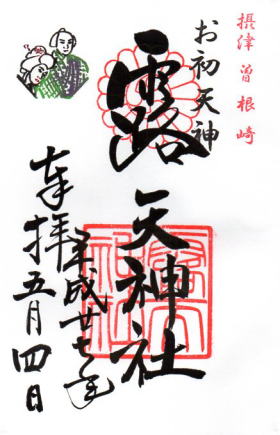 摂津曽根崎
お初天神
露天神社
平成廿七年
奉拝五月四日